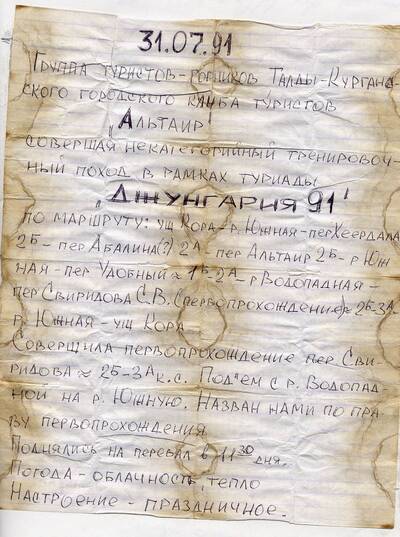 31.07.91
Группа туристов-горников Талды-Курган-
ского городского клуба туристов
„Альтаир"
совершая некатегорийный тренировоч-
ный поход в рамках туриады
„Джунгария 91"
по маршруту: ущ Кора-р. Южная-пер Хеердала
2Б-пер Абалина(?) 2А-пер Альтаир 2Б-р Юж
ная-пер Удобный ≈ 1Б-2А-р Водопадная-
пер Свиридова С.В. (первопрохождение) ≈ 2Б-3А-
р. Южная-ущ Кора
Совершила первопрохождение пер Сви-
ридова ≈ 2Б-3А к.с. Под"ем с р. Водопад-
ной на р. Южную. Назван нами по пра-
ву первопрохождения
Поднялись на перевал в 11 30 дня.
Погода - облачность, тепло
Настроение - праздничное.